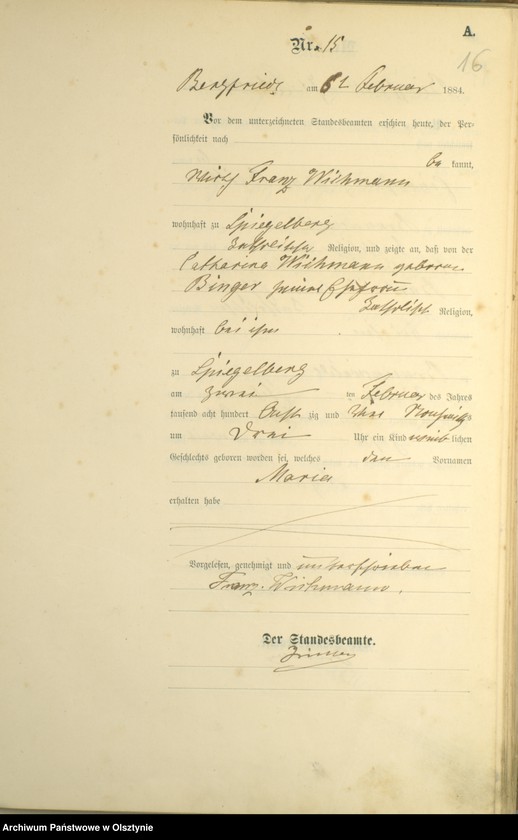 A.
Nr. 15
16
Bergfriede am 6t Februar 1884.
Vor dem unterzeichneten Standesbeamten erschien heute, der Per-
sönlichkeit nach
be kannt,
Wirth Franz Wichmann
wohnhaft zu Spiegelberg
katholischer Religion, und zeigte an, daß von der
Catharina Wichmann geborene
Binger seine Ehefrau
katholisch Religion,
wohnhaft bei ihm
zu Spiegelberg
am zwei ten Februar des Jahres
tausend acht hundert Acht zig und vier Nachmittags
um Drei Uhr ein Kind weib lichen
Geschlechts geboren worden sei, welches den Vornamen
Maria
erhalten habe
Vorgelesen, genehmigt und unterschrieben
Franz Wichmann.
Der Standesbeamte.
Archiwum Państwowe w Olsztynie